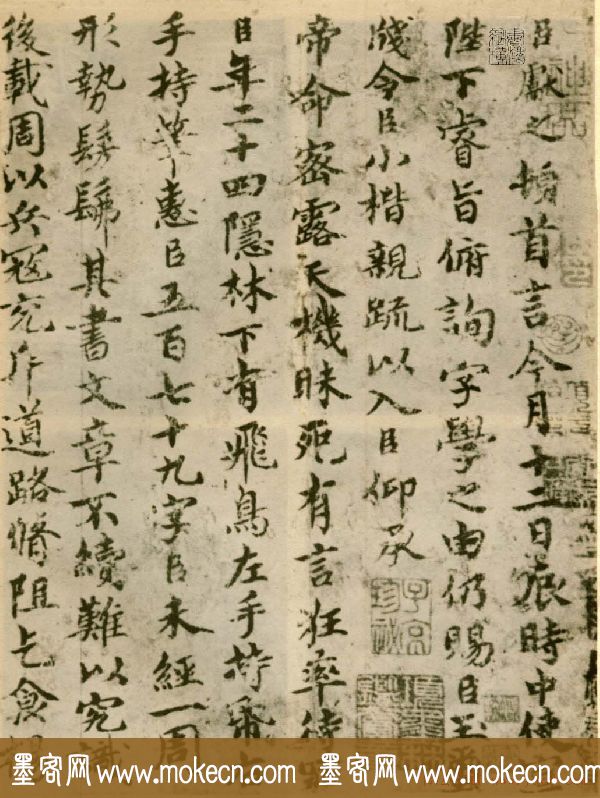 臣獻之頓首言今月十二日辰時中使
陛下睿旨俯詢字學之由仍賜臣玉
牋令臣小楷親疏以入臣仰承
帝命密露天機昧死有言狂率待
臣年二十四隱林下有飛鳥左手持
手持筆惠臣五百七十九字臣未經一周
形勢髣髴其書文章不續難以究識
後載周以兵寇充斥道路修阻乞食
墨客网 www.mokecn.com 墨客网 www.mokecn.com